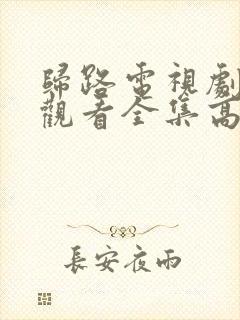 歸路電視劇
觀看全集高
長安夜雨